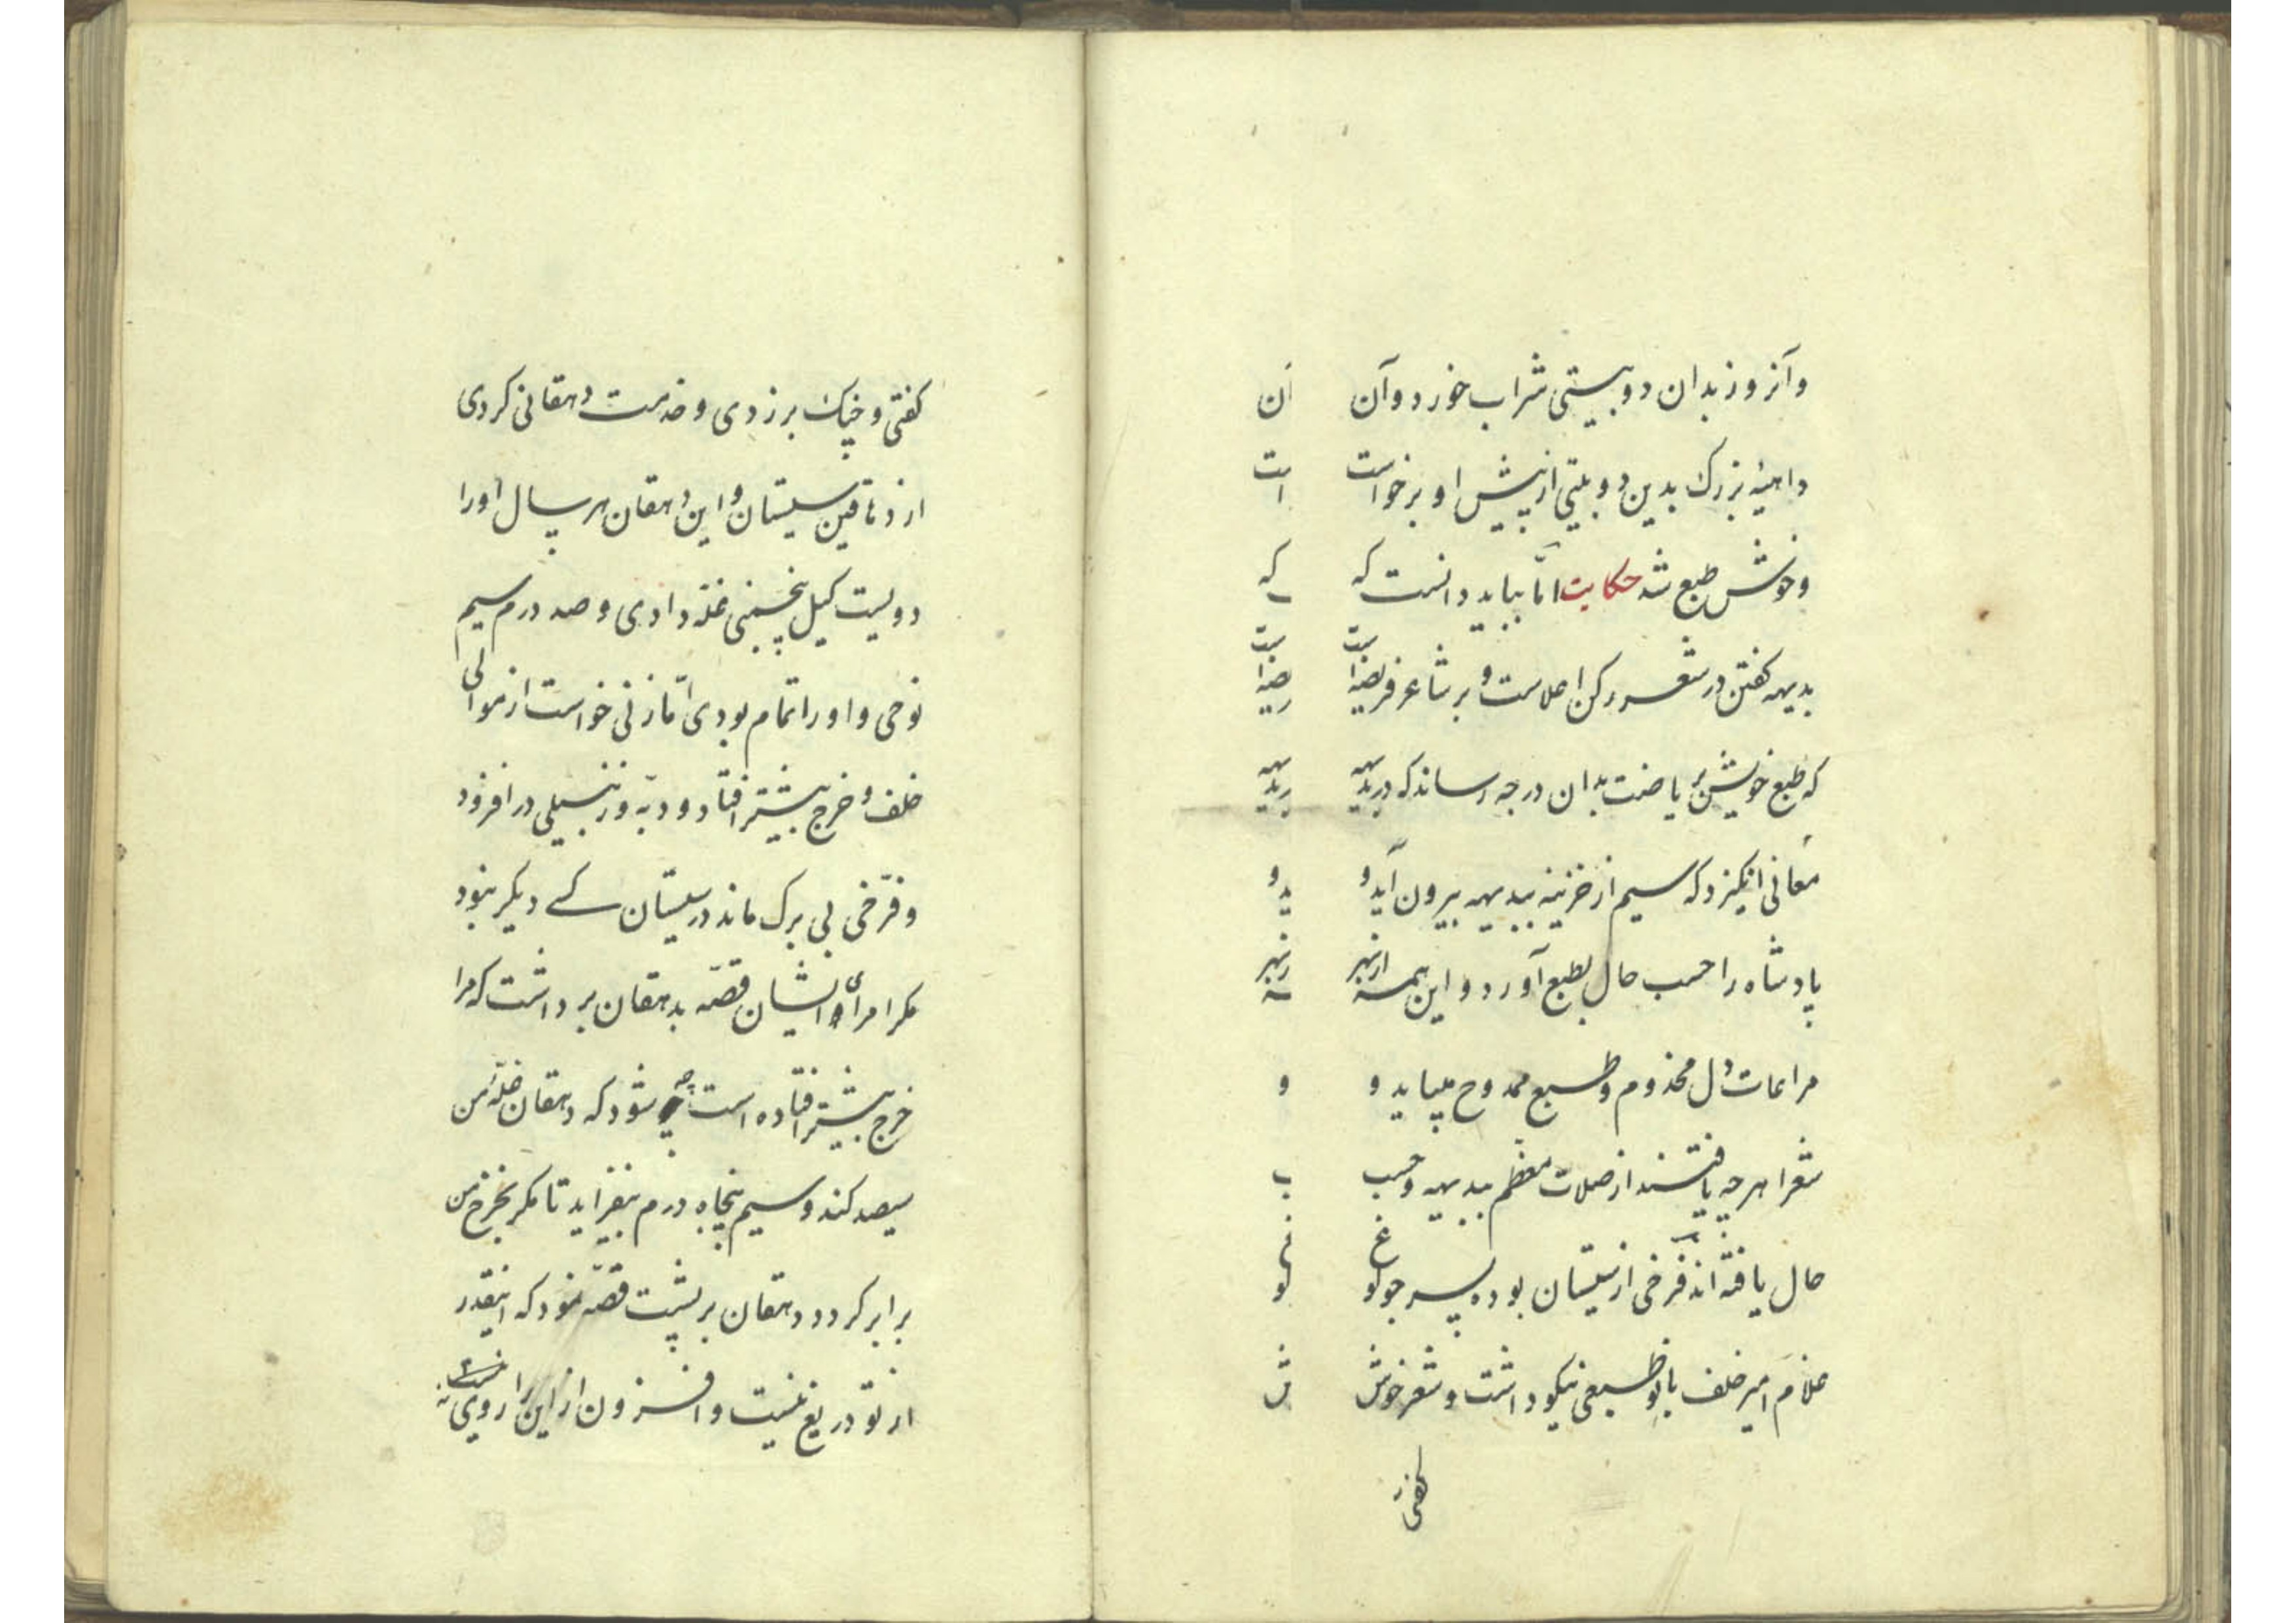 وآنروز بدان دوبیتی شراب خورد وآن
داهیهٔ بزرک بدین دوبیتی از پیش او برخواست
وخوش طبع شد حکایت امّا بباید دانست که
بدیهه کفتن در شعر رکن اعلاست و بر شاعر فریضه است
که طبع خویش بریاضت بدان درجه رساند که در بدیهه
معانی انکیزد که سیم از خزینه ببدیهه بیرون آید و
پادشاه را حسب حال بطبع آورد و این همه از بهر
مراعات دل مخدوم وطبع ممدوح میباید و
شعرا هرچه یافتند از صلات معظم ببدیهه وحسب
حال یافته اند فرخی از سیستان بود پسر جولوغ
غلام امیر خلف بانو طبعی نیکو داشت و شعر خوش
کفتی
کفتی و چنک بر زدی و خدمت دهقانی کردی
از دهاقین سیستان و این دهقان هر سال اورا
دویست کیل پنجمنی غله دادی و صد درم سیم
نوحی و اورا تمام بودی امّا زنی خواست از موالی
خلف و خرج بیشتر افتاد و دبّه و زنبیلی در افزود
و فرّخی بی برک ماند در سیستان کسی دیکر نبود
مکر امرای ایشان قصّه بدهقان برداشت که مرا
خرج بیشتر افتاده است چه شود که دهقان غلّه من
سیصد کند و سیم پنجاه درم بیفزاید تا مکر بخرج من
برابر کردد دهقان بر پشت قصّه نمود که اینقدر
از تو دریغ نیست و افزون از این را روی نیست